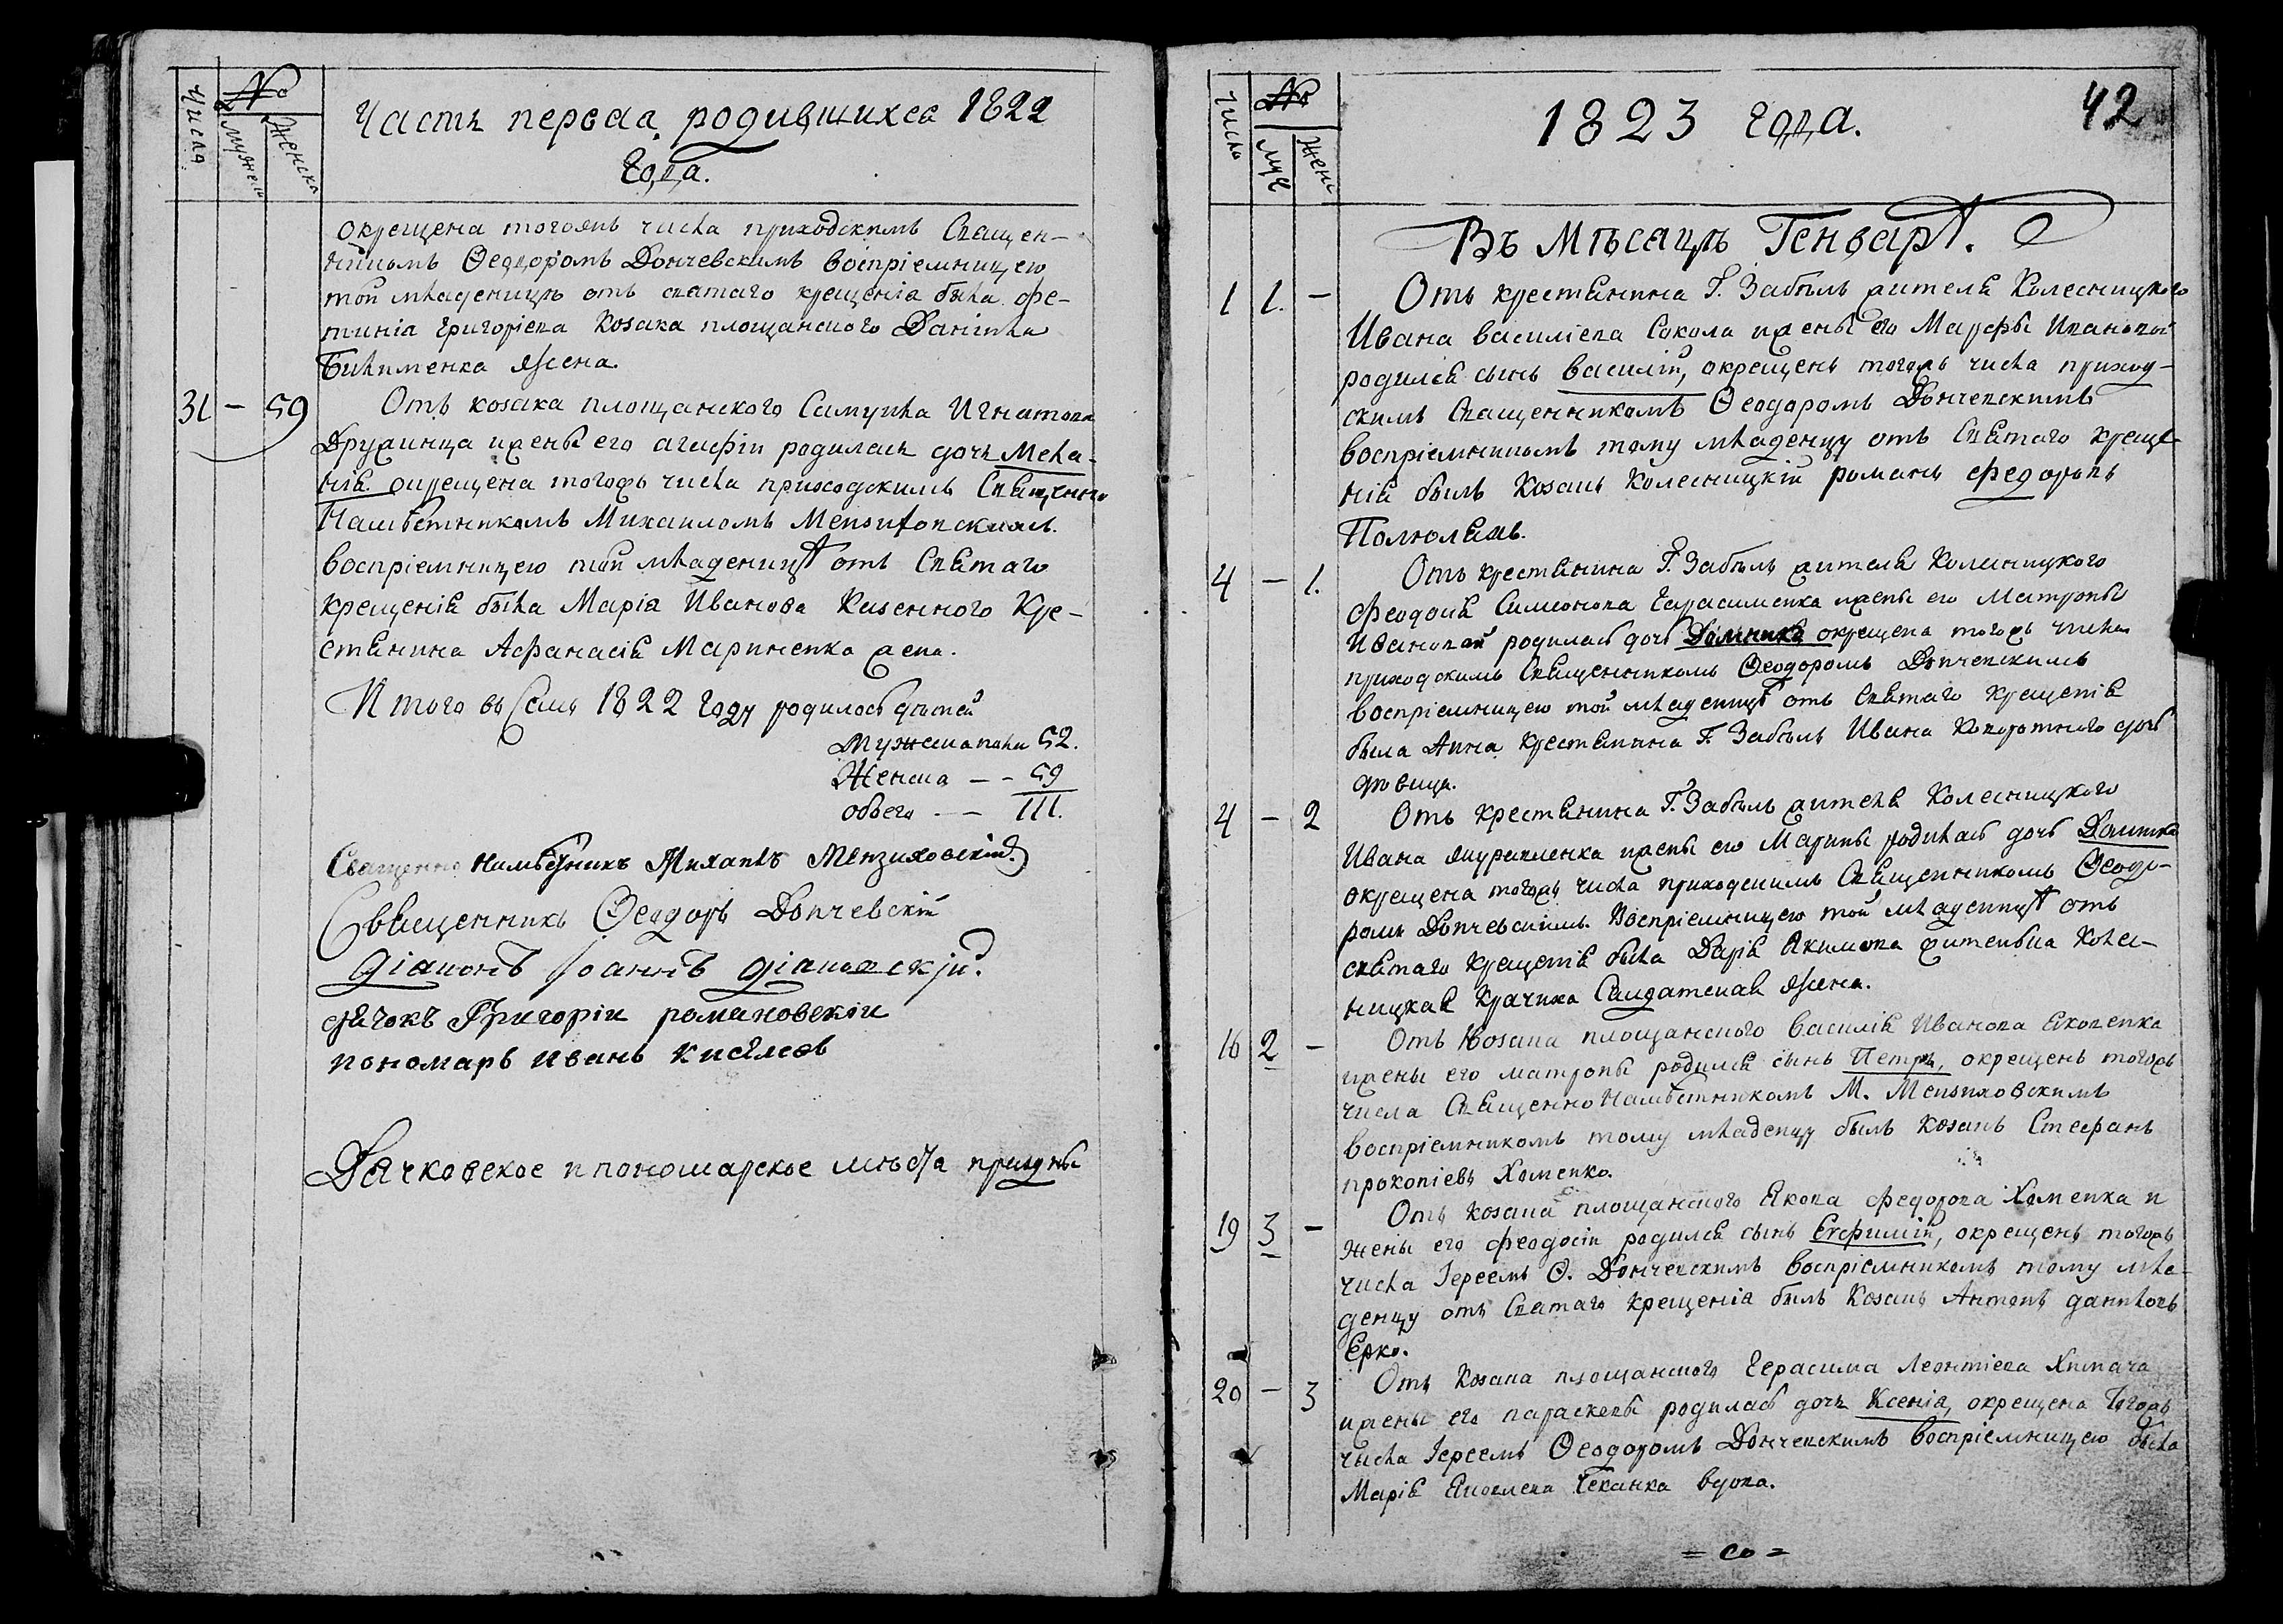 Числа
№
Мужеска
Женска
Часть первая родившихся 1822
Года.
окрещена тогожъ числа приходскимъ Священ-
никомъ Ѳеодоромъ Дончевскимъ воспріемницею
той младеницѣ отъ святаго крещенія была Фе-
тинія Григоріева Козака площанского Даніила
жена.
31 — 59
Отъ козака площанского Самуила Игнатова
Дружинца ижены его Агафіи родилась дочь Мела-
нія окрещена тогожъ числа приходскимъ Священно
Намѣстникомъ Михаиломъ Мензиховскимъ.
воспріемницею той младеницѣ отъ Святаго
крещенія была Марія Иванова Казенного Кре-
стянина Афанасія Мариненка жена.
Итого въ Семъ 1822 Году родилось дѣтей
Мужеска пола 52.
Женска — - 59
обоего - — 111.
Священно Намѣстникъ Михаилъ Мензиховскій.
Священникъ Ѳеодоръ Дончевскій
діаконъ Іоаннъ діаковскій.
дячокъ Григорій романовскій
пономарь иванъ киселевъ
Дячковское и пономарское мѣста праздны
Числа
№
Муж
Жен
1823 года.
42
Въ Мѣсацѣ Генварѣ.
1 1. —
Отъ крестянина Г. Забѣлъ жителя Колесницкого
Ивана василіева Сокола ижены его Марфы Ивановой
родился сынъ василій, окрещенъ тогожъ числа приход-
скимъ Священникомъ Ѳеодоромъ Дончевскимъ
воспріемникомъ тому младенцу отъ Святаго Креще-
нія былъ Козакъ Колесницкій романъ Федоровъ
4 — 1.
Отъ крестянина Г. Забѣлъ жителя Колесницкого
Феодосія Симеонова Герасименка ижены его Матроны
Ивановой родилась дочь Домникія окрещена тогожъ числа
приходскимъ Священникомъ Ѳеодоромъ Дончевскимъ
воспріемницею той младеницѣ отъ Святаго крещенія
была Анна Крестянина Г. Забѣлъ Ивана дочь
дѣвица.
4 — 2
Отъ крестянина Г. Забѣлъ жителя Колесницкого
Ивана ижены его Марины родилась дочь
окрещена тогожъ числа приходскимъ Священникомъ Ѳеодо-
ромъ Дончевскимъ. Воспріемницею той младеницѣ отъ
святаго крещенія была Дарія Якимова жителька Колес-
ницкая Крачиха Салдатская жена.
16 2 —
Отъ Козака площанского василія Иванова Яковенка
ижены его матроны родился сынъ Петръ, окрещенъ тогожъ
числа СвященноНамѣстникомъ М. Мензиховскимъ
воспріемникомъ тому младенцу былъ Козакъ Стефанъ
прокопіевъ Хоменко.
19 3 —
Отъ козака площанского Якова Федорова Хоменка и
жены его Феодосіи родился сынъ Евфимій, окрещенъ тогожъ
числа Іереемъ Ѳ. Дончевскимъ воспріемникомъ тому мла-
денцу отъ Святаго крещенія былъ Козакъ Антонъ даниловъ
Ерко.
20 — 3
Отъ Козака площанского Герасима Леонтіева Химача
ижены его параскевы родилась дочь Ксенія, окрещена тогожъ
числа Іереемъ Ѳеодоромъ Дончевскимъ воспріемницею была
Марія Яковлева Чеканка вдова.